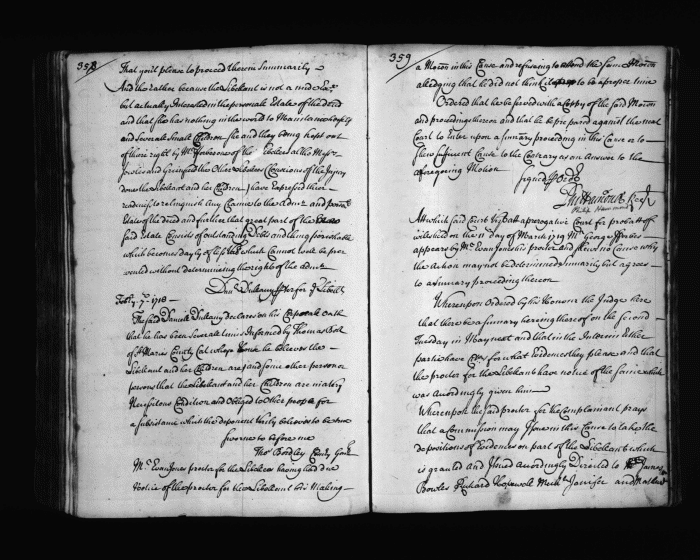 358
That you'l please to proceed therein Summarily
And the rather because the Libellant is not a nude
but actually Interested in the personale Estate of the decd
and that she has nothing in the world to Maintain herself
and severale Small Children She and they being kept out
of their right by Mr of the Libelees as the
and Grieved
done the Libellant and her Children) have Expressed their
readiness to relinquish any Claime to the Admr and
Estate of the decd and further that great part of the
said Estate Consists of outstanding Debts and things perishable
which becomes dayly of less Vallue which Cannot well be
without determineing the right of the Admr
Danl Dullany for ye Libellt
Febry 7th 1718
The said Daniell Dullany declares on his Corporale Oath
that he has been Severale times Informed by Thomas
of St Maries County whom he believes the
Libellant and her Children are and some other persons
persons that the Libellant and her Children are in a very
Necessitous Condition and Obliged to Other people for
a subsistance which the deponent Verily believes to be true
Sworne to before me
Tho Bordley
Mr Evan Jones procter for the Libelees haveing had due
Notice of the procter for the Libellant his Makeing
359
a Motion in this Cause and refuseing to attend the same Motion
alledging that he did not think it to be a proper time
Ordered that he be served with a Coppy of the said Motion
and proceedings thereon and that he be prepared against the next
Court to Enter upon a Sumary proceeding in this Cause or to
shew sufficient Cause to the Contrary as an Answer to the
aforegoing Motion
signed
Ph Hammond
Philip Hammond
At which said Court by Vertue a prerogative Court for probate of
wills held on the 11th day of March 1718 Mr George fforbes
appears by Mr Evan Jones his procter and shews no Cause why
the Action may not be determined Sumarily but agrees
to a sumary proceeding thereon
Whereupon Ordered by his Honour the Judge here
that there be a sumary hearing thereof on the second
Tuesday in May next and that in the Interim Either
partie have for what Evidences they please and that
the procter for the Libellant have notice of the same which
was accordingly given him
Whereupon the said procter for the Complainant prays
that a Commission may Issue in this Cause to take the
depositions of Evidences on part of the Libellant which
is granted and Issued accordingly Directed to James
Bowles Richard Hopewell Jenifer and